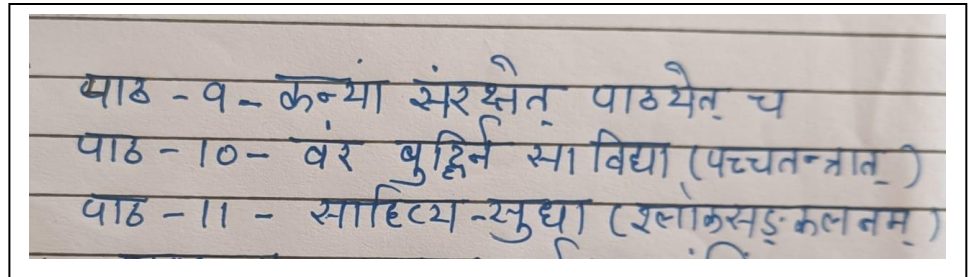 पाठ - ९ - कन्यां संरक्षेत् पाठयेत् च
पाठ - 10 - वरं बुद्धिर्न सा विद्या (पञ्चतन्त्रात्)
पाठ - 11 - साहित्य-सुधा (श्लोकसङ्कलनम्)